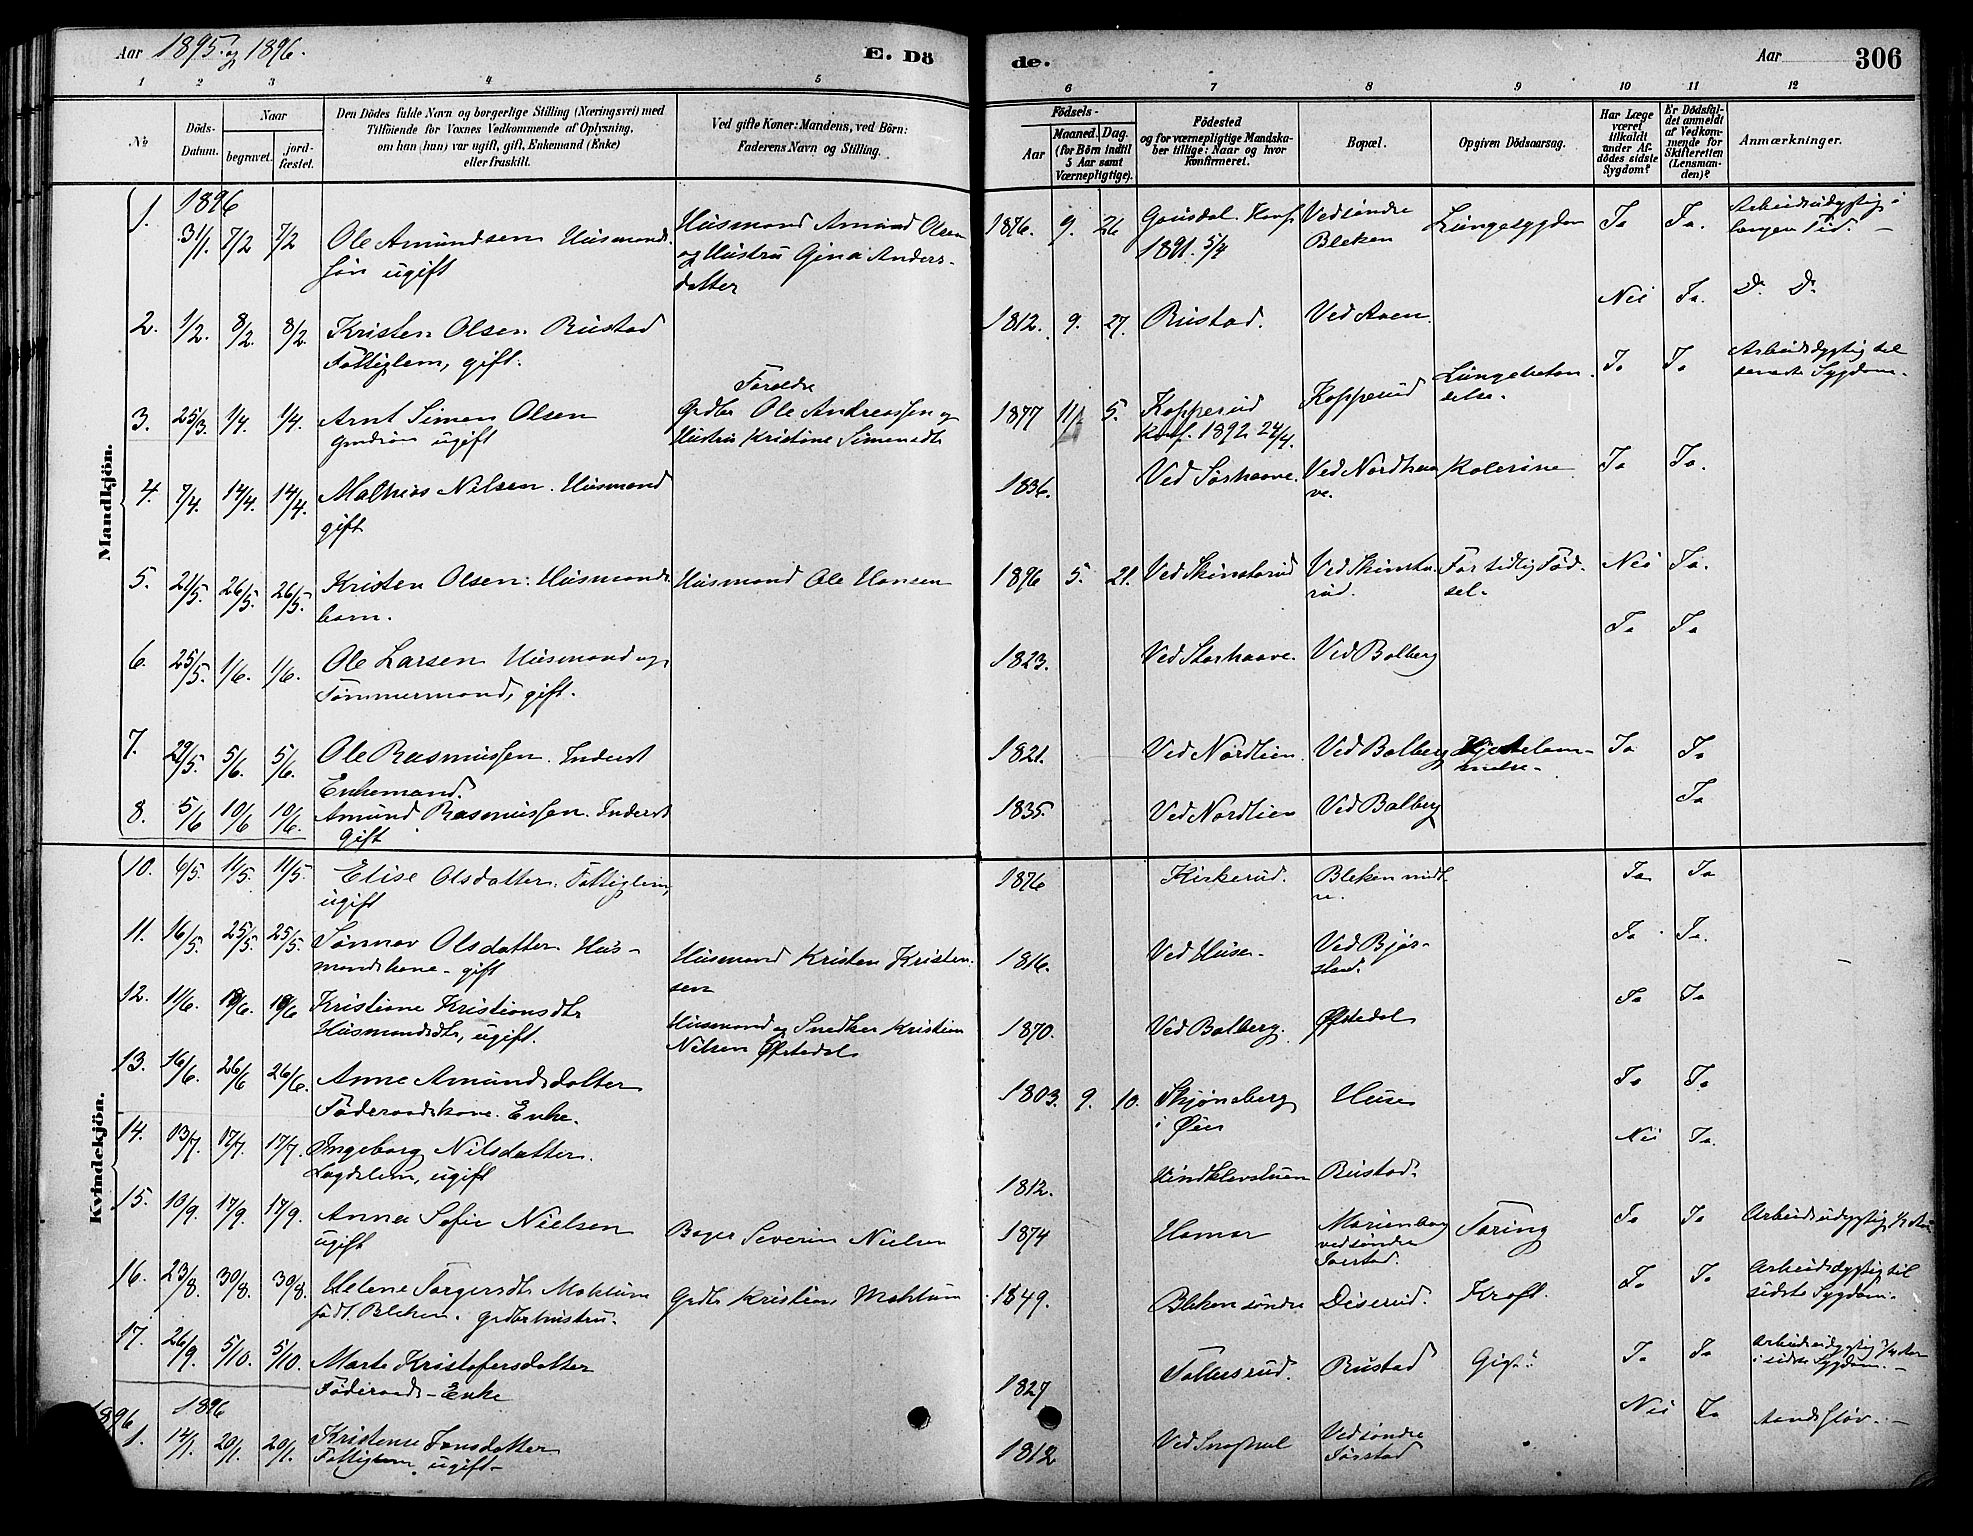 Aar 1895 og 1896.
E. Dö
de.
Aar
306
1 2 3 4 5 6 7 8 9 10 11 12
No
Döds-Datum.
Naar
begravet.
jord-fæstet.
Den Dödes fulde Navn og borgerlige Stilling (Næringsvei) med
Tilföiende for Voxnes Vedkommende af Oplysning,
om han (hun) var ugift, gift, Enkemand (Enke)
eller fraskilt.
Ved gifte Koner: Mandens, ved Börn:
Faderens Navn og Stilling.
Födsels-
Aar
Maaned. Dag.
(for Börn indtil
5 Aar samt
Værnepligtige).
Födested
og for værnepligtige Mandska-
ber tillige: Naar og hvor
konfirmeret.
Bopæl.
Opgiven Dödsaarsag.
Har Læge
været
tilkaldt
under Af-
dödes sidste
Sygdom?
Er Dödsfal-
det anmeldt
af Vedkom-
mende for
Skifteretten
(Lensman-
den)?
Anmærkninger.
Mandkjön.
1896
1. 31/1. 7/2 7/2 Ole Amundsen Husmands- Husmand Amund Olsen 1876. 9. 26 Gausdal Konf. Ved søndre Lungesygdom Ja Ja. Arbeidsudygtig i
søn ugift og Hustru Gina Anders- 1891. 5/4 Bleken længere Tid.
datter
2. 1/2. 8/2. 8/2. Kristen Olsen Rustad 1812. 9. 27. Rustad. Ved Aaen. Nei Ja. D. D.
Fattiglem, gift.
Forældre
3. 25/3. 1/4. 1/4. Arnt Simen Olsen Grdbr Ole Andreassen og 1877 11 5. Kopperud Kopperud Lungebetæn- Ja Ja Arbeidsdygtig til
ugift Hustru Kristine Simensdt Konf. 1892 24/4. delse. seneste Sygdom.
4. 7/4. 14/4. 14/4. Mathias Nilsen. Husmand 1836. Ved Sørhaave. Ved Nordhaa- Kolerine Ja Ja.
gift ve.
5. 21/5. 26/5. 26/5. Kristen Olsen. Husmands- Husmand Ole Hansen 1896 5. 21. Ved Skinstarud Ved Skinsta- For tidlig Fød- Nei Ja.
barn. rud. sel.
6. 25/5. 1/6. 1/6. Ole Larsen Husmand og 1823. Ved Storhaave. Ved Balberg Ja Ja
Tømmermand, gift.
7. 29/5. 5/6. 5/6. Ole Rasmussen. Inderst 1821. Ved Nordlien. Ved Balberg Ja Ja
Enkemand.
8. 5/6 10/6 10/6. Amund Rasmussen. Inderst 1835. Ved Nordlien Ved Balberg Ja
gift
Kvindekjön.
10. 6/5. 11/5. 11/5. Elise Olsdatter. Fattiglem, 1876 Kirkerud. Bleken midt- Ja Ja
ugift re.
11. 16/5. 25/5. 25/5. Sønnøv Olsdatter. Hus- Husmand Kristen Kristen- 1816. Ved Huse Ved Bjør- Ja Ja.
mandskone - gift sen stad.
12. 11/6. 18/6. 18/6 Kristiane Kristiansdtr Husmand og Snedker Kristian 1870. Ved Balberg. Øfstedal Ja Ja
Husmandsdtr, ugift. Nilsen Øfstedal
13. 16/6. 26/6 26/6. Anne Amundsdatter 1803. 9. 10. Skjønsberg Huse Ja Ja
Føderaadskone. Enke. i Øier
14. 13/7. 17/7. 17/7. Ingeborg Nilsdatter. 1812. Rustad. Nei Ja.
Lægdslem, ugift
15. 10/9. 17/9. 17/9. Anna Sofie Nielsen Bager Severin Nielsen 1874 Hamar Marienborg Tæring Ja Ja Arbeidsudygtig 1/2 Aar
ugift ved søndre
Jørstad.
16. 23/8. 30/8. 30/8. Helene Torgersdt. Mohlum Grdbr Kristian Mohlum 1849. Bleken søndre Diserud. Kræft. Ja Ja Arbeidsdygtig til
født Bleken. Grdbrhustru. sidste Sygdom.
17. 26/9. 5/10. 5/10. Marte Kristofersdatter 1827 Tollersrud. Rustad Gigt Ja Ja Arbeidsudygtig 3/4 Aar
Føderaads-Enke i sidste Sygdom.
1896 1896
1. 14/1. 20/1. 20/1. Kristense Jonsdatter 1812 Ved søndre Nei Ja Aandssløv.
Fattiglem, ugift Jørstad